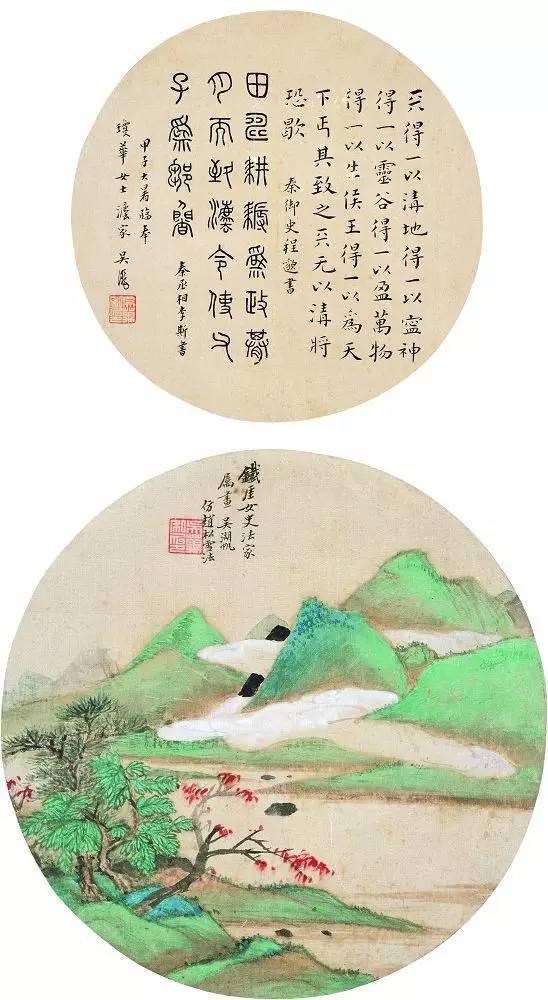 天得一以清地得一以寍神
得一以靈谷得一以盈萬物
得一以生侯王得一以為天
下正其致之天无以清將
恐歇
秦御史程邈書
田疇耕耨爲政朞
月而致灋令傳
子爲
秦丞相李斯書
甲子大暑臨奉
璞華女士灋家 吳
鐵厓女史法家
屬畫 吳湖帆
仿趙松雪法